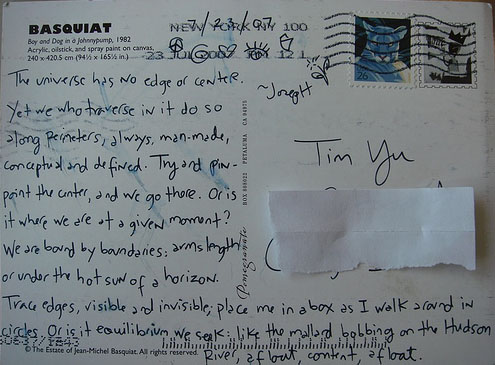 BASQUIAT
Boy and Dog in a Johnnypump, 1982
Acrylic, oilstick, and spray paint on canvas,
240 x 420.5 cm (94½ x 165½ in.)
7/23/07
NEW YORK NY 100
23 JUL
12 1
26
~Joseph
The universe has no edge or center.
Yet we who traverse in it do so
along perimeters, always, man-made,
conceptual and defined. Try and pin-
point the center, and we go there. Or is
it where we are at a given moment?
We are bound by boundaries: arms length
or under the hot sun of a horizon.
Trace edges, visible and invisible; place me in a box as I walk around in
circles. Or is it equilibrium we seek: like the mallard bobbing on the Hudson
River, afloat, content, afloat.
Tim Yu
Pomegranate
BOX 808022 PETALUMA CA 94975
© The Estate of Jean-Michel Basquiat. All rights reserved.